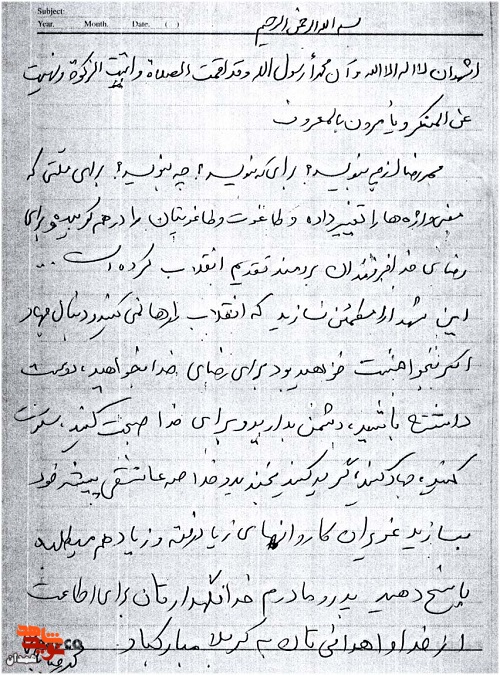 Subject:
Year. Month. Date. ( )
بسم الله الرحمن الرحیم
اشهد ان لا اله الا الله و آن محمد رسول الله وقد اقمت الصلاة و اتیت الزکوة و نهیت
عن المنکر و یامرون بالمعروف
محمدرضا از چه بنویسد؟ برای که بنویسد؟ چه بنویسد؟ برای ملتی که
معنی واژه ها را تغییر داده و طاغوت و طاغوتیان را در هم کوبیده و برای
رضای خدا فرزندان برومند تقدیم انقلاب کرده است...
این شهدا را مطمئن سازید که انقلاب را رها نمی کنید و دنبال جهاد
اکبر خواهید بود برای رضای خدا بخواهید، دوست
داشته باشید، دشمن بدارید و برای خدا صحبت کنید، سکوت
کنید، جهاد کنید، گریه کنید بخندید و خلاصه عاشقی پیشه خود
بسازید عزیزان کاروانهای زیاد رفته و زیاد هم میطلبد
پاسخ دهید پدر و مادرم خدا نگهدارتان برای اطاعت
از خدا و اهدائی تان به کربلا مبارکباد